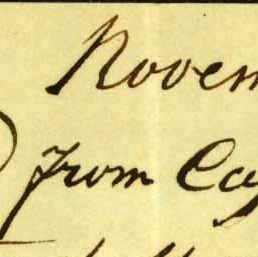 Novem
from Ca